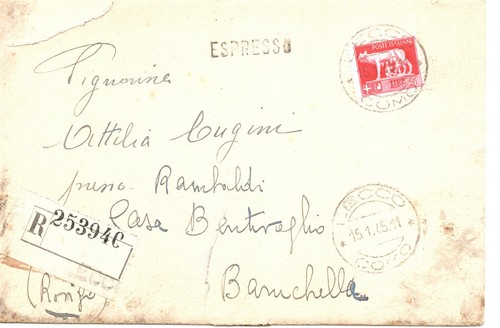 ESPRESSO
LECCO
POSTE ITALIANE
LIRE 5
COMO
Signorina
Attilia Cugini
presso Rambaldi
Casa Bentivoglio
Baruchella
R 253940
(Rovigo)
LECCO
15.1.45.11
COMO